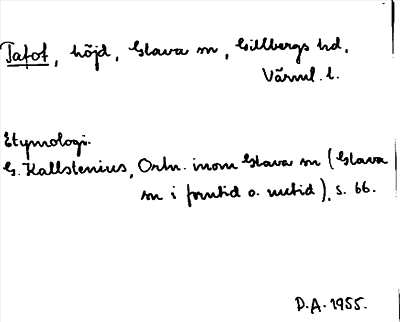 Tatot, höjd, Glava sn, Gillbergs hd,
Värml. l.
Etymologi.
G. Kallstenius, Ortn. inom Glava sn (Glava
sn i forntid o. nutid), s. 66.
D.A. 1955.